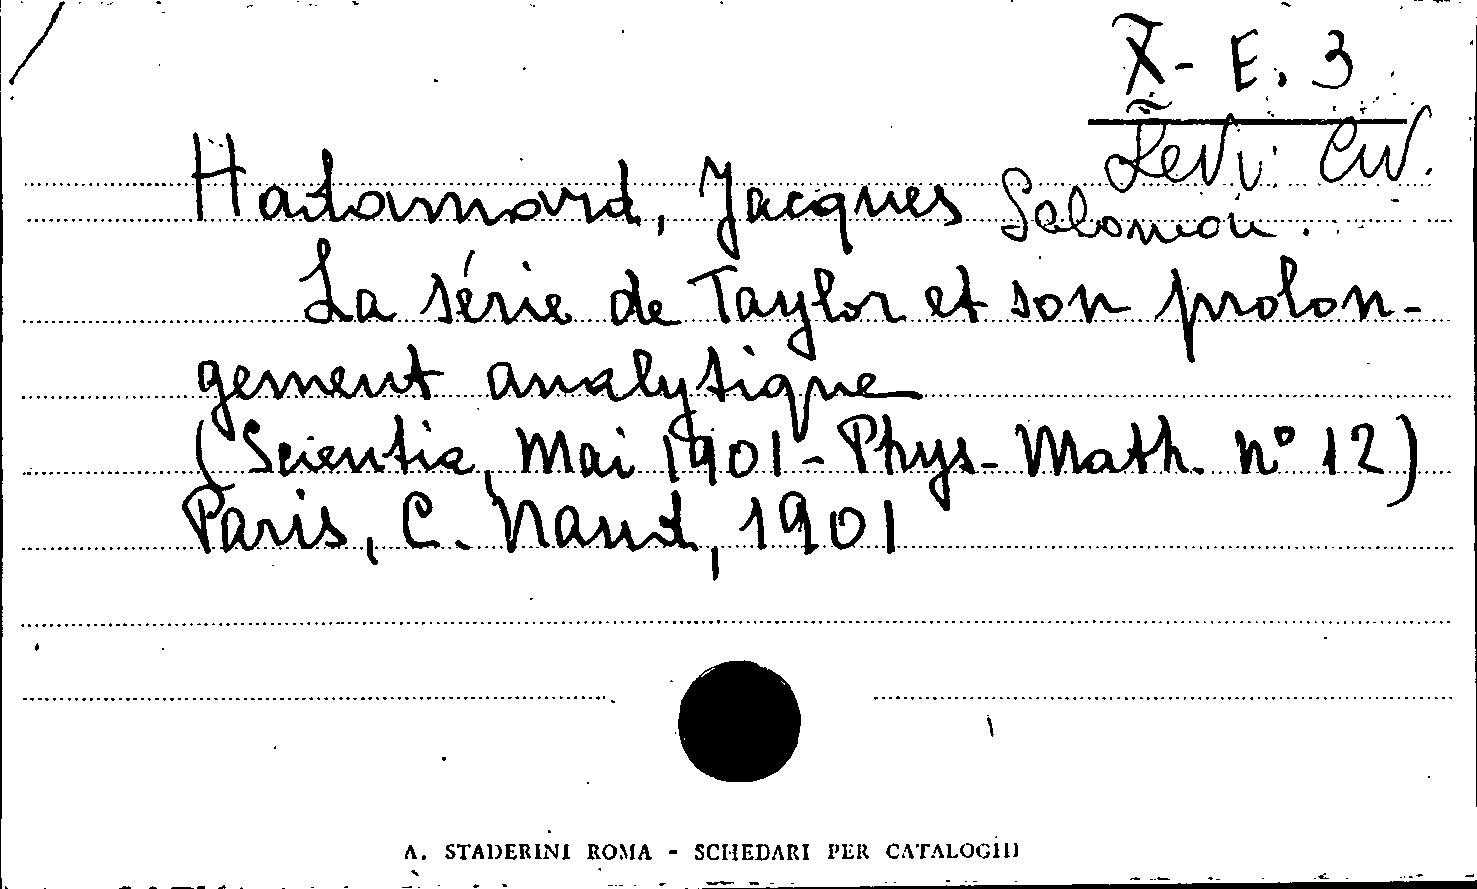 X - E. 3
Levi Civ.
Hadamard, Jacques Salomon.
La série de Taylor et son prolon-
gement analytique
(Scientia, Mai 1901 - Phys- Math. n° 12)
Paris, C. Naud, 1901
A. STADERINI ROMA - SCHEDARI PER CATALOGHI